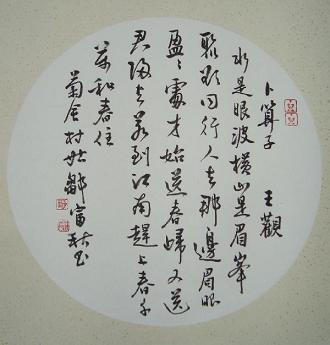 卜算子 王觀
水是眼波橫山是眉峯
聚欲问行人去那邊眉眼
盈々處才始送春歸又送
君归去若到江南趕上春千
萬和春住
菊舍村姑鄒富秋书